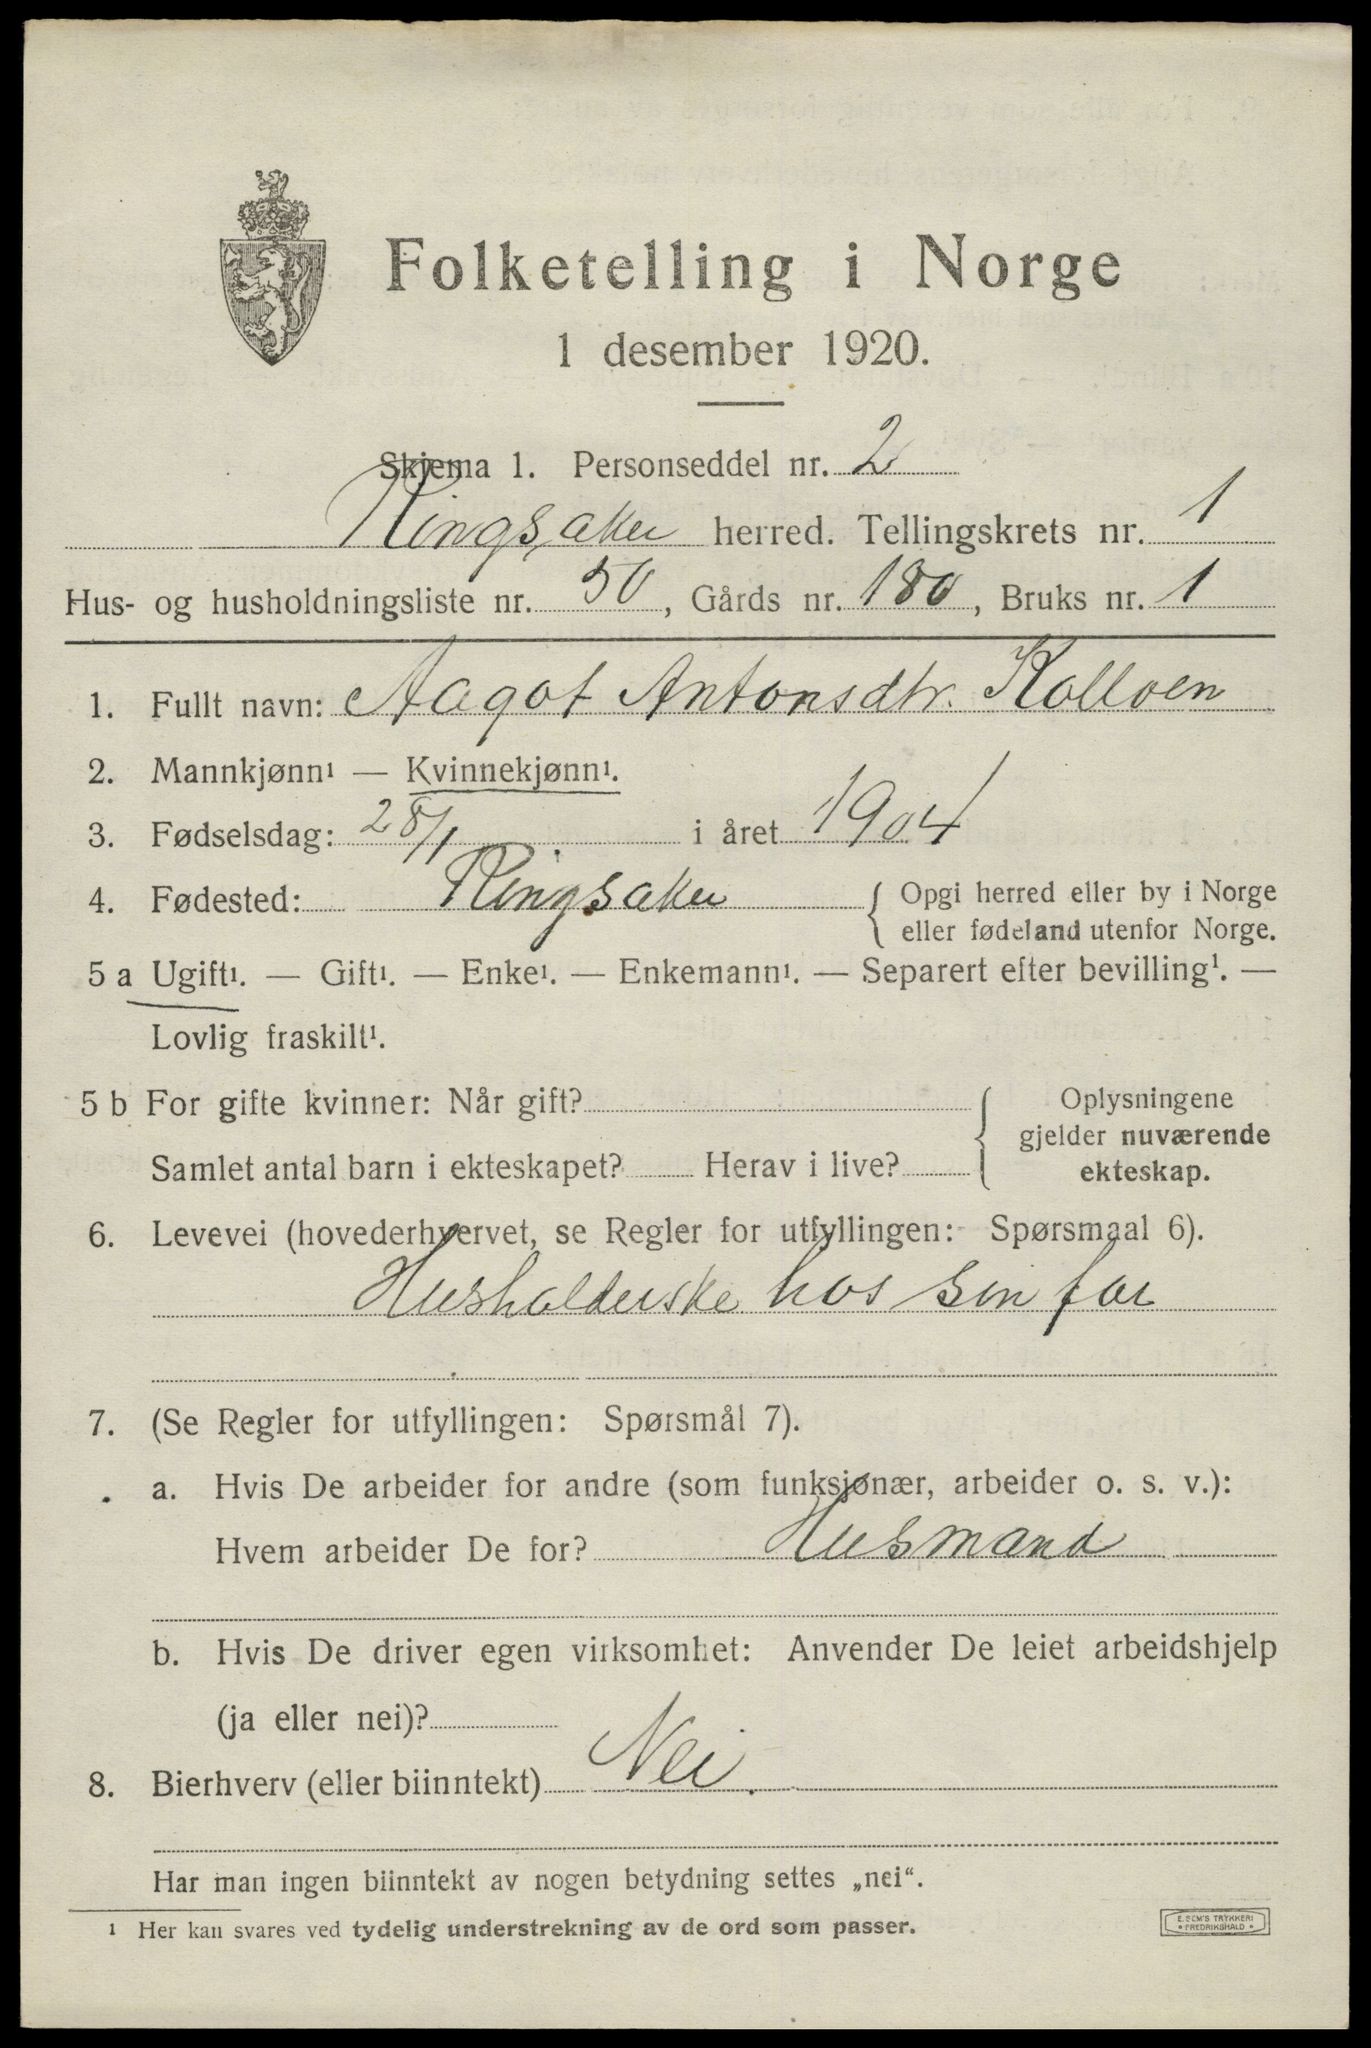 Folketelling i Norge
1 desember 1920.
Skjema 1. Personseddel nr. 2
Ringsaker herred. Tellingskrets nr. 1
Hus- og husholdningsliste nr. 50, Gårds nr. 180, Bruks nr. 1
1. Fullt navn: Aagot Antonsdtr. Kolloen
2. Mannkjønn¹ — Kvinnekjønn¹.
3. Fødselsdag: 28/1 i året 1904
4. Fødested: Ringsaker { Opgi herred eller by i Norge
eller fødeland utenfor Norge.
5 a Ugift¹. — Gift¹. — Enke¹. — Enkemann¹. — Separert efter bevilling¹. —
Lovlig fraskilt¹.
5 b For gifte kvinner: Når gift?
Samlet antal barn i ekteskapet? Herav i live?
Oplysningene
gjelder nuværende
ekteskap.
6. Levevei (hovederhvervet, se Regler for utfyllingen: Spørsmaal 6).
Husholderske hos sin far
7. (Se Regler for utfyllingen: Spørsmål 7).
a. Hvis De arbeider for andre (som funksjonær, arbeider o. s. v.):
Hvem arbeider De for? Husmand
b. Hvis De driver egen virksomhet: Anvender De leiet arbeidshjelp
(ja eller nei)?
8. Bierhverv (eller biinntekt) Nei.
Har man ingen biinntekt av nogen betydning settes „nei“.
¹ Her kan svares ved tydelig understrekning av de ord som passer.
E. SEM'S TRYKKERI
• FREDRIKSHALD •